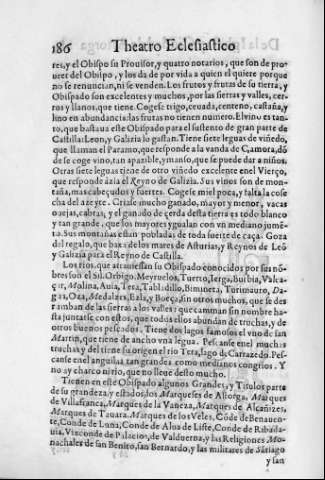 186 Theatro Eclesiastico
res, y el Obispo su Prouisor, y quatro notarios, que son de pro-
ueer del Obispo, y los da de por vida a quien el quiere porque
no se renuncian, ni se venden. Los frutos y frutas de su tierra, y
Obispado son excelentes y muchos, por las sierras y valles, cer-
ros y llanos que tiene. Cogese trigo, ceuada, centeno, castaña, y
lino en abundancia: las frutas no tienen numero. El vino es tan-
to, que bastaua este Obispado para el sustento de gran parte de
Castilla: Leon, y Galizia lo gastan. Tiene siete leguas de viñedo,
que llaman el Paramo, que responde a la vanda de Çamora, dõ
de se coge vino, tan apazible, y manso, que se puede dar a niños.
Otras siete leguas tiene de otro viñedo excelente en el Vierço,
que responde àzia el Reyno de Galizia. Sus vinos son de mon-
taña, mas cabeçudos y fuertes. Cogese miel poca, y falta la cose
cha del azeyte. Criase mucho ganado, mayor y menor, vacas
ouejas, cabras, y el ganado de çerda desta tierra es todo blanco
y tan grande, que los mayores ygualan con vn mediano jumẽ-
to. Sus montañas estan pobladas de toda suerte de caça. Goza
del regalo, que baxa de los mares de Asturias, y Reynos de Leõ
y Galizia para el Reyno de Castilla.
Los rios, que atrauiessan su Obispado conocidos por sus nõ-
bres son el Sil, Orbigo, Meyruelos, Tuerto, Ierga, Burbia, Valca-
çar, Molina, Auia, Tera, Tabladillo, Bimuera, Turimauro, Da-
gas, Oza, Medalzes, Ezla, y Boeça, sin otros muchos, que se des
ramban de las sierras a los valles: que camman sin nombre has-
ta juntarse con estos, que todos ellos abundan de truchas, y de
otros buenos pescados. Tiene dos lagos famosos el vno de san
Martin, que tiene de ancho vna legua. Pescanse en el muchas
truchas y del tiene su origen el rio Tera, lago de Carrazedo. Pes-
canse en el anguilas tan grandes como medianos congrios. Y
no ay charco ni rio, que no lleue desto mucho.
Tienen en este Obispado algunos Grandes, y Titulos parte
de su grandeza, y estados, los Marqueses de Astorga, Marques
de Villafranca, Marques de la Vaneza, Marques de Alcañizes,
Marques de Tauara, Marques de los Velez, Cõde de Benauen-
te, Conde de Luna, Conde de Alua de Liste, Conde de Ribada-
uia, Vizconde de Palacios, de Valduerna, y las Religiones Mo-
nachales de san Benito, san Bernardo, y las militares de Sãtiago
y san